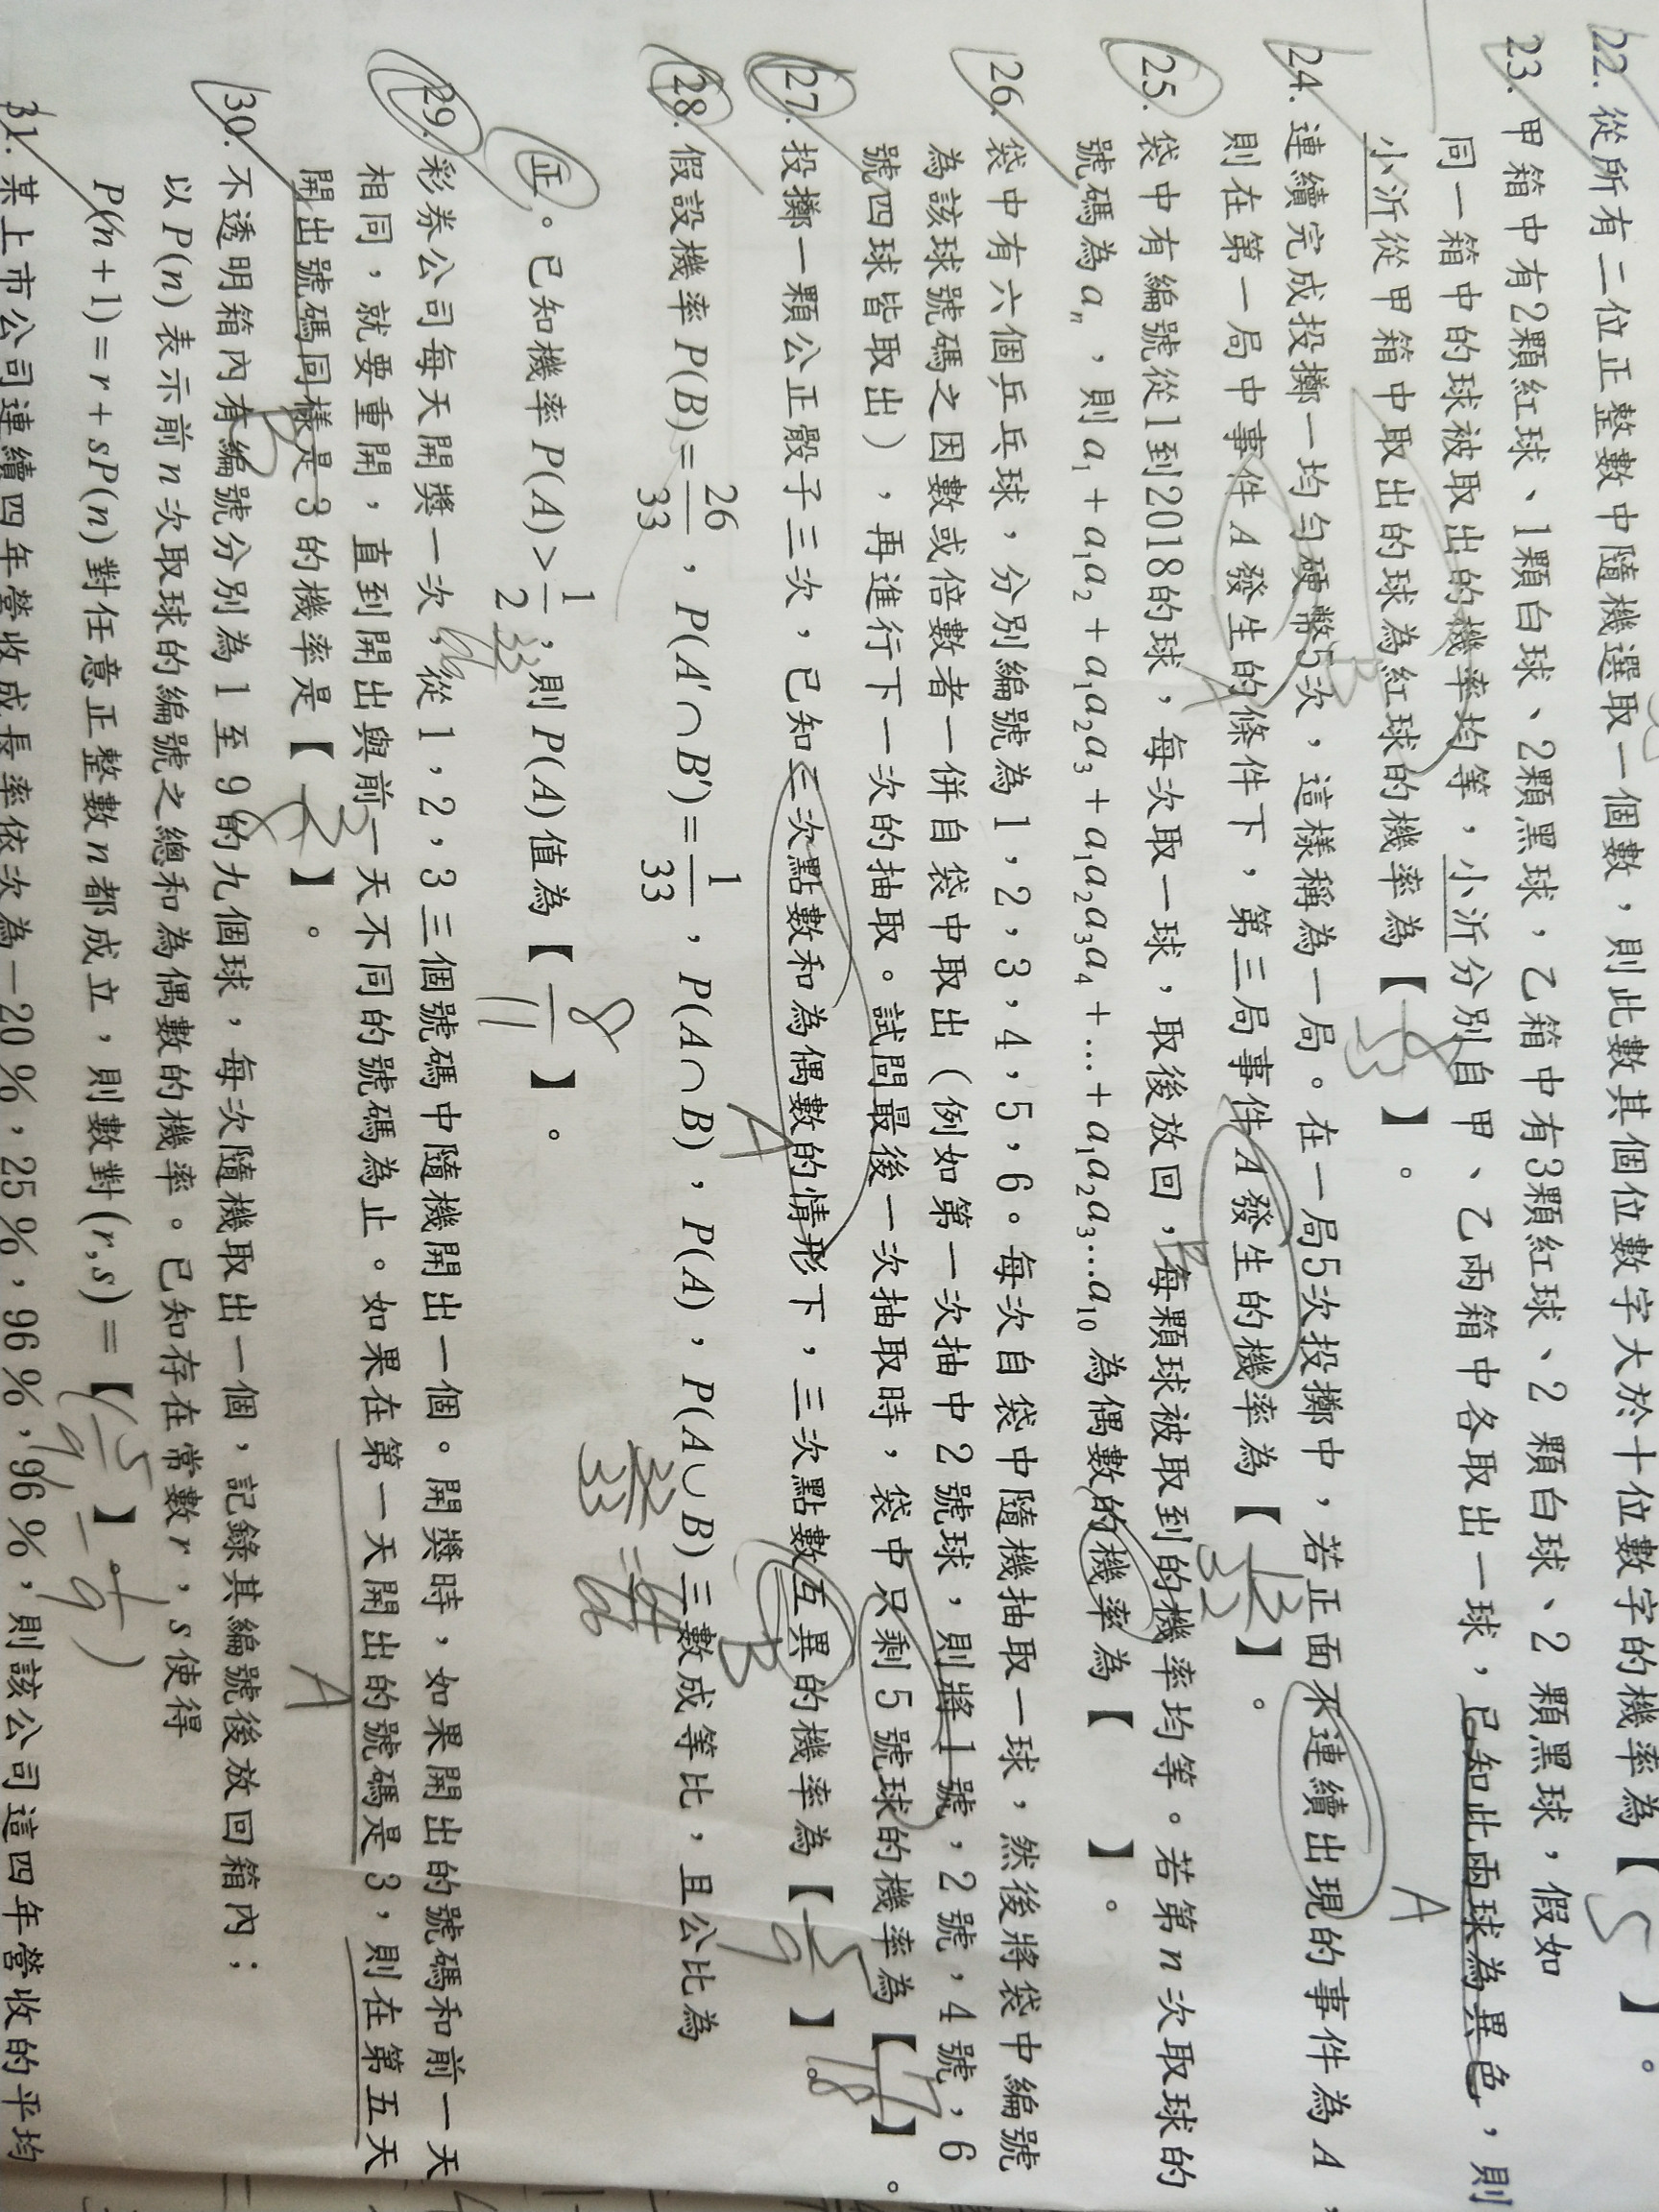 22. 從所有二位正整數中隨機選取一個數，則此數其個位數字大於十位數字的機率為【 5 】。
23. 甲箱中有2顆紅球、1顆白球、2顆黑球，乙箱中有3顆紅球、2 顆白球、2 顆黑球，假如
同一箱中的球被取出的機率均等，小沂分別自甲、乙兩箱中各取出一球，已知此兩球為異色，則
小沂從甲箱中取出的球為紅球的機率為【 】。
24. 連續完成投擲一均勻硬幣5次，這樣稱為一局。在一局5次投擲中，若正面不連續出現的事件為 A，
則在第一局中事件 A 發生的條件下，第三局事件 A 發生的機率為【 13/32 】。
25. 袋中有編號從1到2018的球，每次取一球，取後放回，每顆球被取到的機率均等。若第 n 次取球的
號碼為 aₙ，則 a₁ + a₁a₂ + a₁a₂a₃ + a₁a₂a₃a₄ + … + a₁a₂a₃…a₁₀ 為偶數的機率為【 】。
26. 袋中有六個乒乓球，分別編號為 1，2，3，4，5，6。每次自袋中隨機抽取一球，然後將袋中編號
為該球號碼之因數或倍數者一併自袋中取出（例如第一次抽中 2 號球，則將 1 號，2 號，4 號，6
號四球皆取出），再進行下一次的抽取。試問最後一次抽取時，袋中只剩 5 號球的機率為【 】。
27. 投擲一顆公正骰子三次，已知三次點數和為偶數的情形下，三次點數互異的機率為【 5/9 】
28. 假設機率 P(B)=26/33，P(A'∩B')=1/33，P(A∩B)，P(A)，P(A∪B)三數成等比，且公比為
正。已知機率 P(A)>1/2，則 P(A)值為【 8/11 】。
29. 彩券公司每天開獎一次，從 1，2，3 三個號碼中隨機開出一個。開獎時，如果開出的號碼和前一天
相同，就要重開，直到開出與前一天不同的號碼為止。如果在第一天開出的號碼是 3，則在第五天
開出號碼同樣是 3 的機率是【 】。
30. 不透明箱內有編號分別為 1 至 9 的九個球，每次隨機取出一個，記錄其編號後放回箱內；
以 P(n) 表示前 n 次取球的編號之總和為偶數的機率。已知存在常數 r，s 使得
P(n+1)=r+sP(n) 對任意正整數 n 都成立，則數對 (r,s)=【(5/9, -1/9)】
31. 某上市公司連續四年營收成長率依次為－20％，25％，96％，96％，則該公司這四年營收的平均